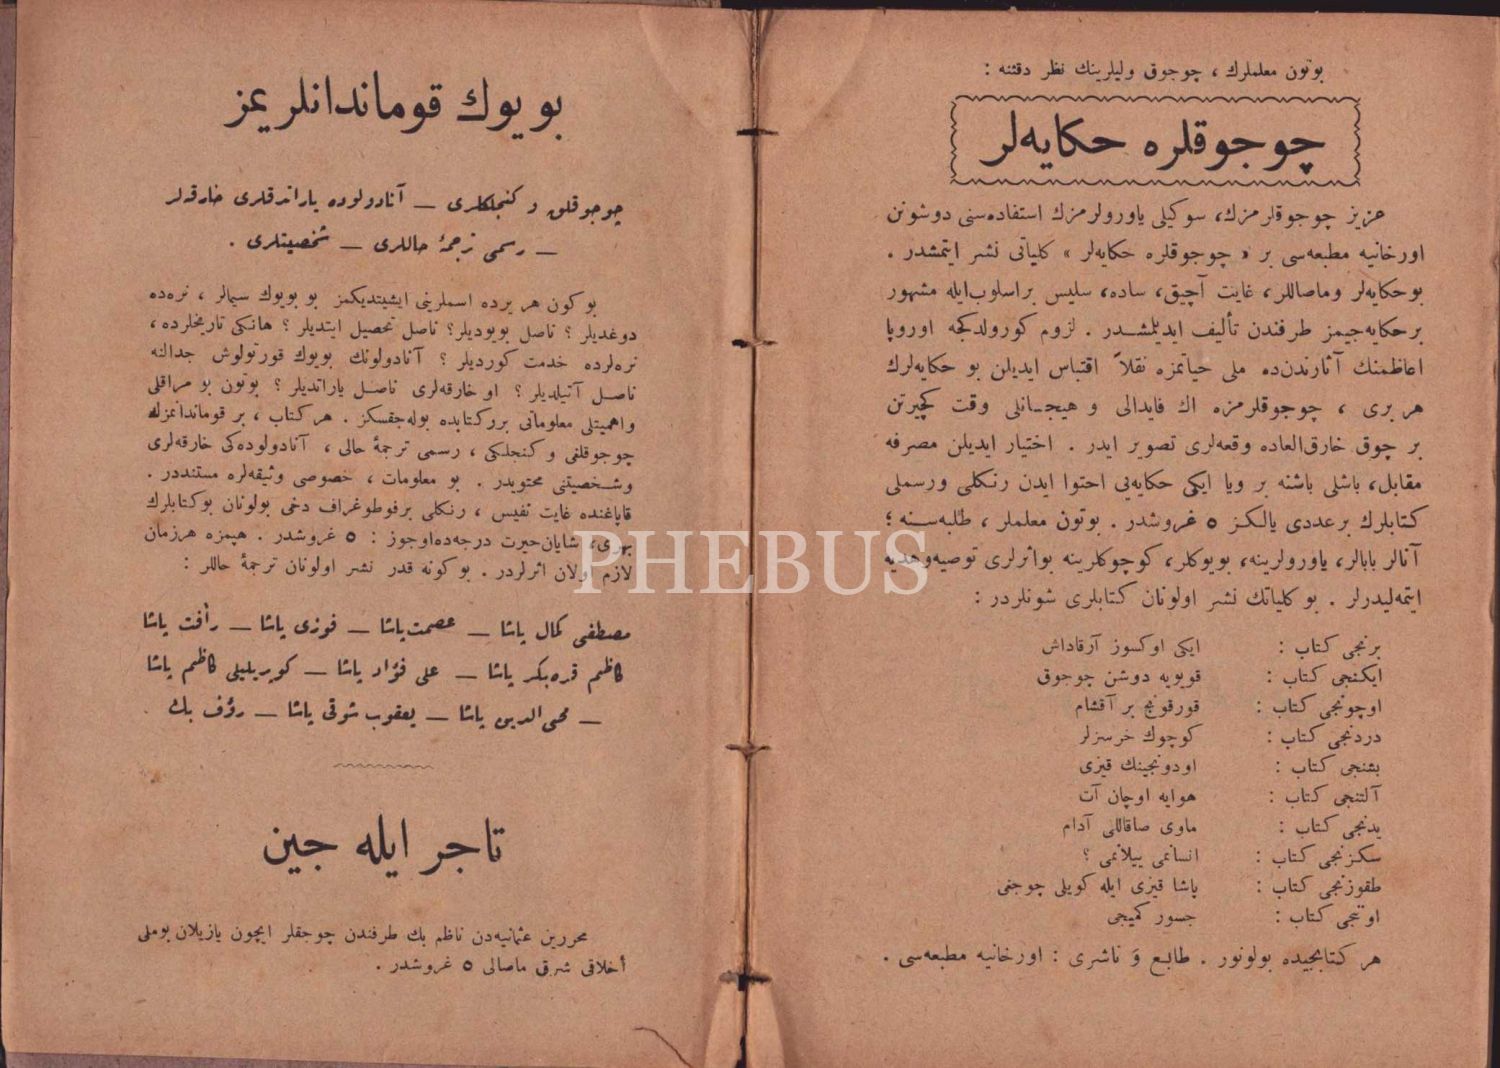 بوتون معلملرك ، چوجوق وليلرينك نظر دقتنه :
چوجوقلره حكايه‌لر
عزيز چوجوقلرمزك، سوكيلى ياورولرمزك استفاده‌سنى دوشونن
اورخانيه مطبعه‌سى بر « چوجوقلره حكايه‌لر » كلياتى نشر ايتمشدر .
بوحكايه‌لر وماصاللر، غايت آچيق، ساده، سليس براسلوب‌ايله مشهور
برحكايه‌جيمز طرفندن تأليف ايديلمشدر . لزوم كورولدكجه اوروپا
اعاظمنك آثارندن‌ده ملى حياتمزه نقلاً اقتباس ايديلن بو حكايه‌لرك
هر برى ، چوجوقلرمزه اك فايدالى و هيجانلى وقت كچيرتن
بر چوق خارق‌العاده وقعه‌لرى تصوير ايدر . اختيار ايديلن مصرفه
مقابل، باشلى باشنه بر ويا ايكى حكايه‌يى احتوا ايدن رنكلى ورسملى
كتابلرك برعددى يالكز ٥ غروشدر . بوتون معلملر ، طلبه‌سنه ؛
آنالر بابالر، ياورولرينه، بويوكلر، كوچوكلرينه بواثرلرى توصيه‌وهديه
ايتمه‌ليدرلر . بو كلياتك نشر اولونان كتابلرى شونلردر :
برنجى كتاب : ايكى اوكسوز آرقاداش
ايكنجى كتاب : قويويه دوشن چوجوق
اوچونجى كتاب : قورقونج بر آقشام
دردنجى كتاب : كوچوك خرسزلر
بشنجى كتاب : اودونجينك قيزى
آلتنجى كتاب : هوايه اوچان آت
يدنجى كتاب : ماوى صاقاللى آدام
سكزنجى كتاب : انسانمى ييلانمى ؟
طقوزنجى كتاب : پاشا قيزى ايله كويلى چوجغى
اونجى كتاب : جسور كميجى
هر كتابجيده بولونور . طابع وَ ناشرى : اورخانيه مطبعه‌سى .
بويوك قوماندانلريمز
چوجوقلق و كنجلكلرى — آنادولوده ياراتدقلرى خارقه‌لر
— رسمى ترجمۀ حاللرى — شخصيتلرى .
بوكون هر يرده اسملرينى ايشيتديكمز بو بويوك سيمالر ، نره‌ده
دوغديلر ؟ ناصل بويوديلر؟ ناصل تحصيل ايتديلر ؟ هانكى تاريخلرده ،
نره‌لرده خدمت كورديلر ؟ آنادولونك بويوك قورتولوش جدالنه
ناصل آتيلديلر ؟ او خارقه‌لرى ناصل ياراتديلر ؟ بوتون بو مراقلى
واهميتلى معلوماتى بركتابده بوله‌جقسكز . هركتاب ، بر قوماندانمزك
چوجوقلغى و كنجلكى ، رسمى ترجمۀ حالى ، آنادولوده‌كى خارقه‌لرى
وشخصيتنى محتويدر . بو معلومات ، خصوصى وثيقه‌لره مستنددر .
قاپاغنده غايت نفيس ، رنكلى برفوطوغراف دخى بولونان بوكتابلرك
بهرى، شايان‌حيرت درجه‌ده‌اوجوز : ٥ غروشدر . هپمزه هرزمان
لازم اولان اثرلردر . بوكونه قدر نشر اولونان ترجمۀ حاللر :
مصطفى كمال پاشا — عصمت‌پاشا — فوزى پاشا — رأفت پاشا
كاظم قره‌بكر پاشا — على فؤاد پاشا — كوپريليلى كاظم پاشا
— محى‌الدين پاشا — يعقوب شوقى پاشا — رؤف بك .
تاجر ايله جين
محررين عثمانيه‌دن ناظم بك طرفندن چوجقلر ايچون يازيلان بوملى
أخلاقى شرق ماصالى ٥ غروشدر .
PHEBUS